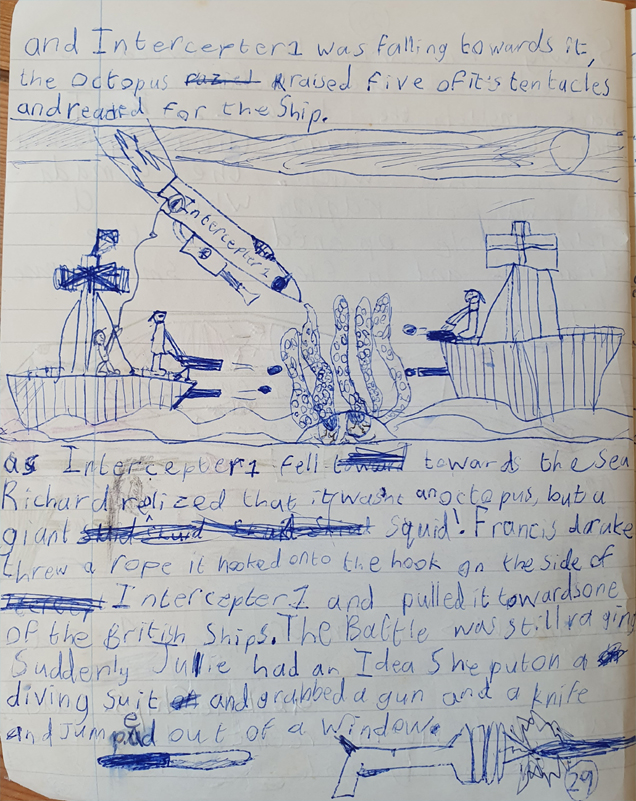 and Intercepter1 was falling towards it,
the octopus raised five of it's tentacles
and readied for the Ship.
Intercepter1
as Intercepter1 fell towards the sea
Richard relized that it wasn't an octopus, but a
giant squid! Francis drake
threw a rope it hooked onto the hook on the side of
Intercepter1 and pulled it towards one
of the British Ships. The Battle was still raging
Suddenly Julie had an Idea She put on a
diving suit and grabbed a gun and a knife
and Jumped out of a window.
29